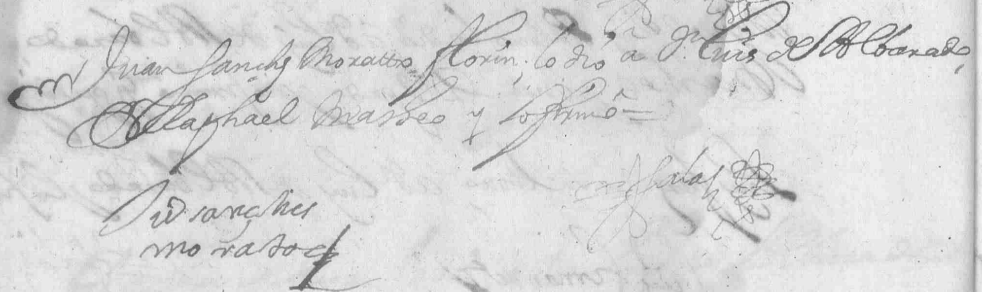 Juan Sanchs Moratto florin, lo dio a Dn Luis de Albarado,
A Raphael Matheo y lo firmo =
Ju sanches
moratto